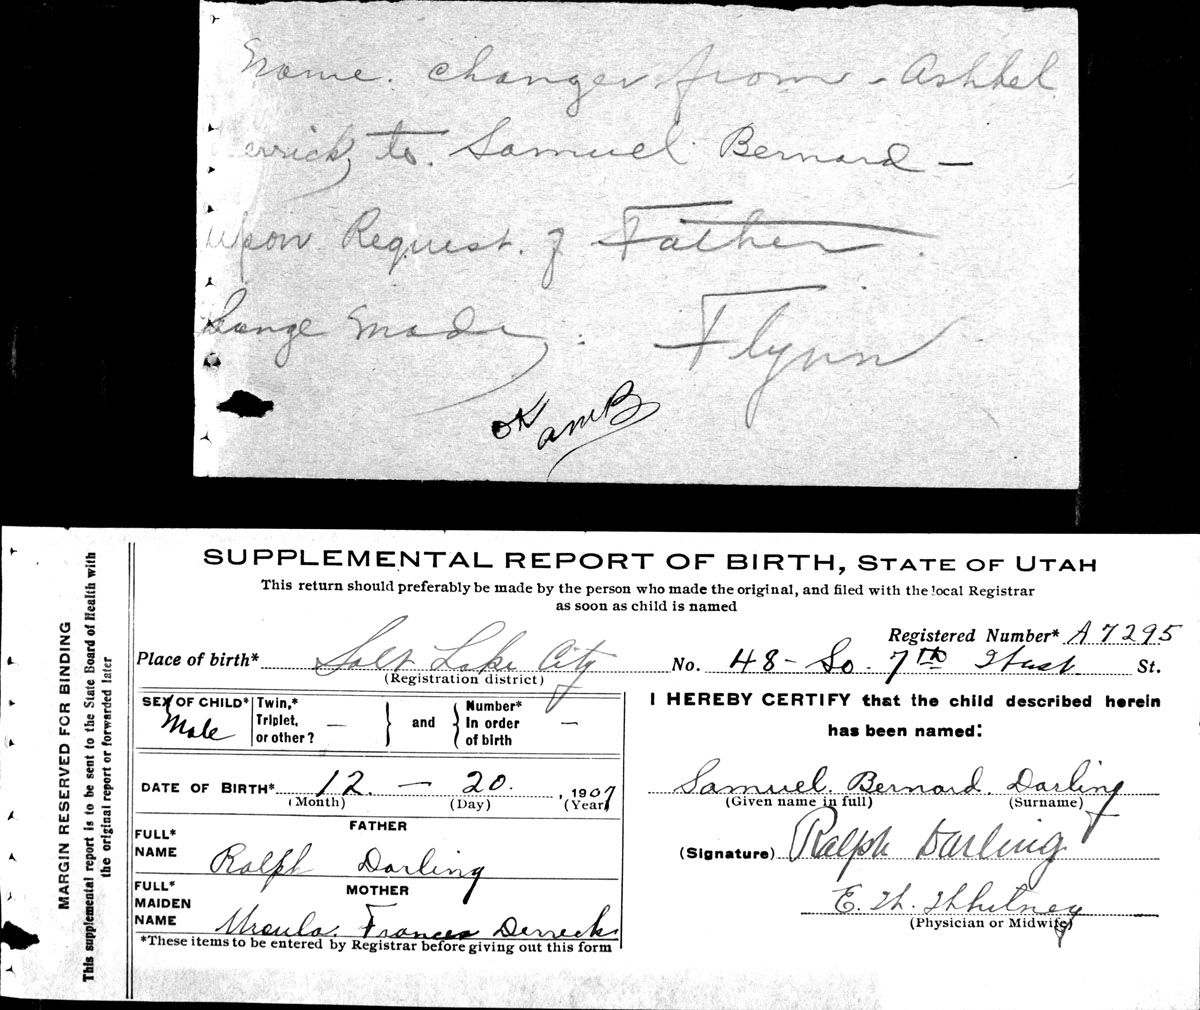 Name. changed from - Ashbel
errick, to. Samuel Bernard -
upon Request. of Father.
hange Made, . Flynn
OK AMB
SUPPLEMENTAL REPORT OF BIRTH, STATE OF UTAH
This return should preferably be made by the person who made the original, and filed with the local Registrar
as soon as child is named
Registered Number* A7295
Place of birth* Salt Lake City No. 48 - So. 7th West St.
(Registration district)
SEX OF CHILD* Male
Twin,* Triplet, or other? — and Number* In order of birth —
I HEREBY CERTIFY that the child described herein
has been named:
DATE OF BIRTH* 12. — 20. , 1907
(Month) (Day) (Year)
Samuel. Bernard. Darling
(Given name in full) (Surname)
FATHER
FULL* NAME Ralph Darling
(Signature) Ralph Darling
MOTHER
FULL* MAIDEN NAME Ursula. Frances Derrick
E. W. Whitney
(Physician or Midwife)
*These items to be entered by Registrar before giving out this form
MARGIN RESERVED FOR BINDING
This supplemental report is to be sent to the State Board of Health with
the original report or forwarded later